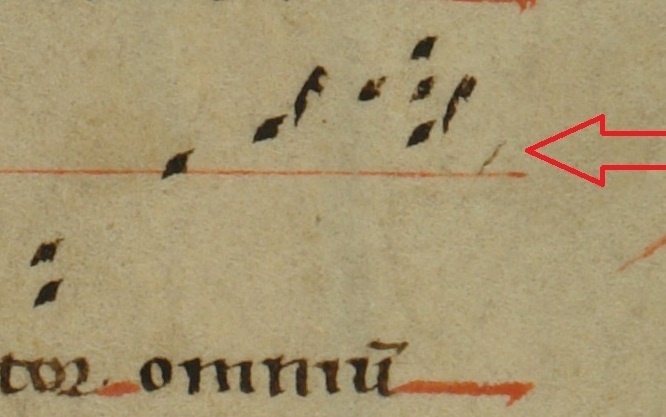 tor omniū